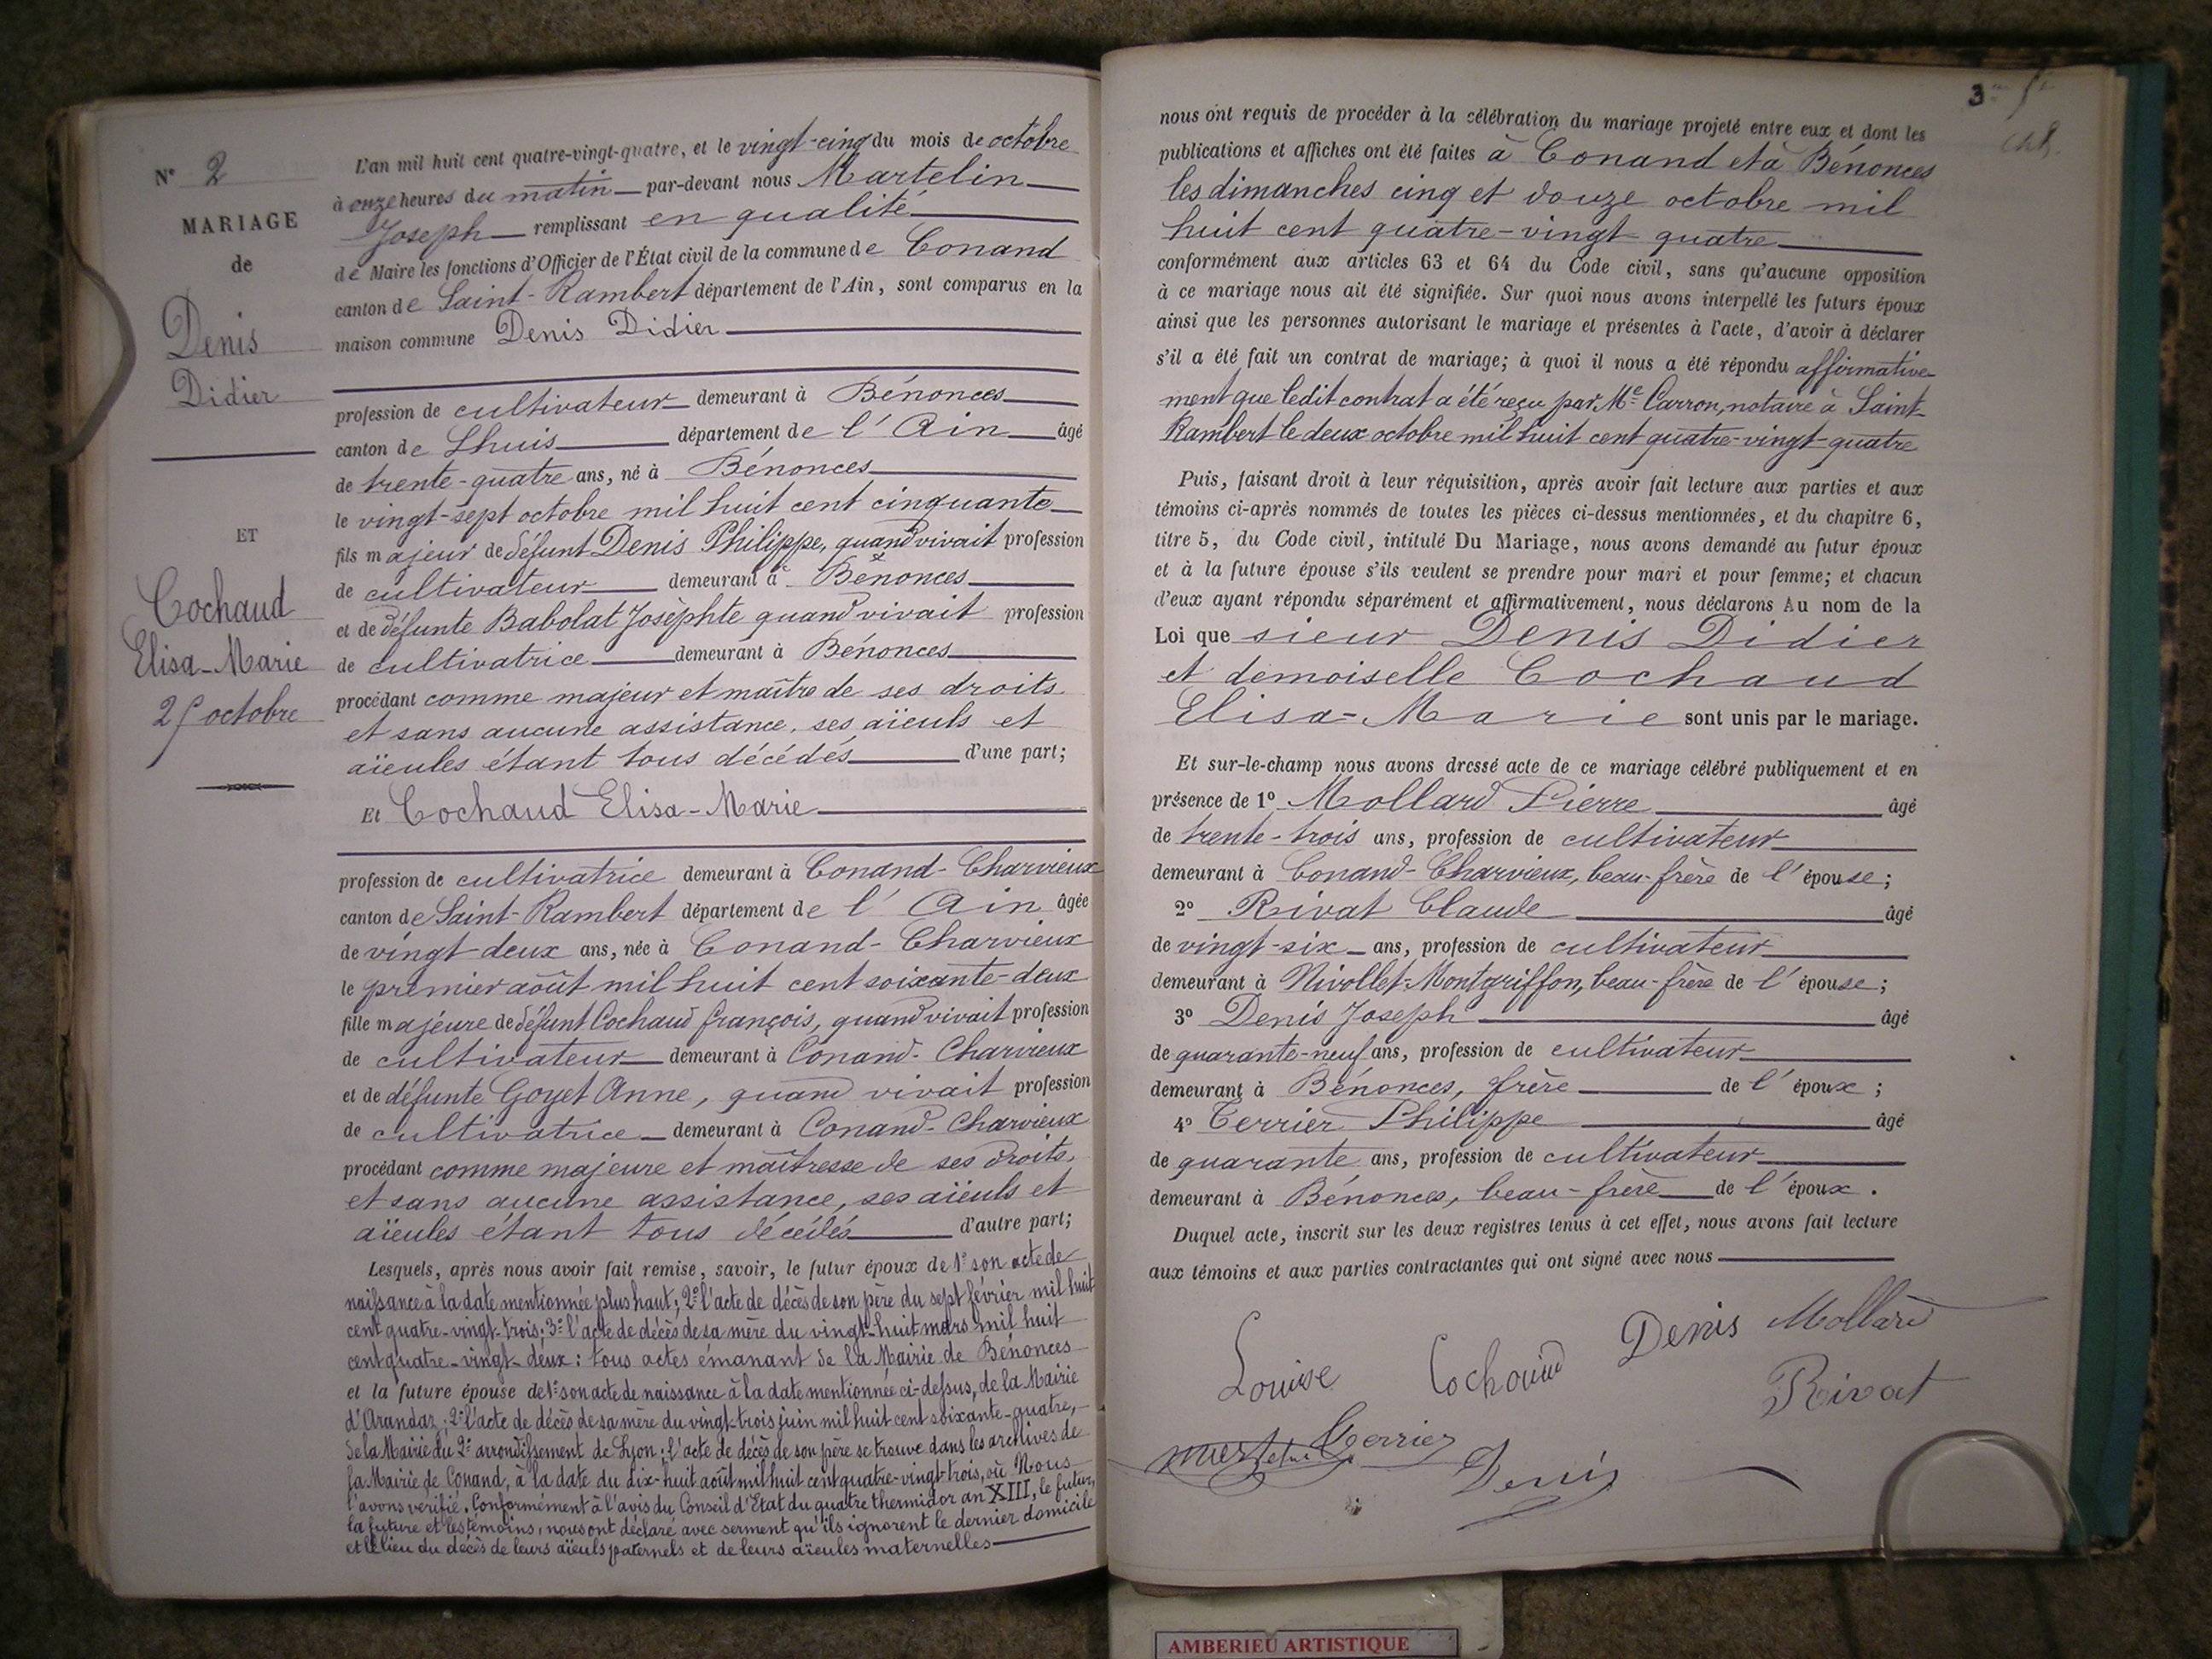 N° 2
MARIAGE
de
Denis
Didier
ET
Cochaud
Elisa-Marie
25 octobre
L'an mil huit cent quatre-vingt-quatre, et le vingt-cinq du mois de octobre
à onze heures du matin par-devant nous Martelin
Joseph remplissant en qualité
de Maire les fonctions d'Officier de l'État civil de la commune de Conand
canton de Saint-Rambert département de l'Ain, sont comparus en la
maison commune Denis Didier
profession de cultivateur demeurant à Bénonces
canton de Lhuis département de l'Ain âgé
de trente-quatre ans, né à Bénonces
le vingt-sept octobre mil huit cent cinquante
fils majeur de défunt Denis Philippe, quand vivait profession
de cultivateur demeurant à Bénonces
et de défunte Babolat Josèphte quand vivait profession
de cultivatrice demeurant à Bénonces
procédant comme majeur et maître de ses droits
et sans aucune assistance, ses aïeuls et
aïeules étant tous décédés d'une part;
Et Cochaud Elisa-Marie
profession de cultivatrice demeurant à Conand-Charvieux
canton de Saint-Rambert département de l'Ain âgée
de vingt-deux ans, née à Conand-Charvieux
le premier août mil huit cent soixante-deux
fille majeure de défunt Cochaud françois, quand vivait profession
de cultivateur demeurant à Conand-Charvieux
et de défunte Goyet Anne, quand vivait profession
de cultivatrice demeurant à Conand-Charvieux
procédant comme majeure et maîtresse de ses droits,
et sans aucune assistance, ses aïeuls et
aïeules étant tous décédés d'autre part;
Lesquels, après nous avoir fait remise, savoir, le futur époux de 1° son acte de
naissance à la date mentionnée plus haut; 2° l'acte de décès de son père du sept février mil huit
cent quatre-vingt-trois; 3° l'acte de décès de sa mère du vingt-huit mars mil huit
cent quatre-vingt-deux: tous actes émanant de la Mairie de Bénonces
et la future épouse de 1° son acte de naissance à la date mentionnée ci-dessus, de la Mairie
d'Arandaz; 2° l'acte de décès de sa mère du vingt-trois juin mil huit cent soixante-quatre,
de la Mairie du 2e arrondissement de Lyon; l'acte de décès de son père se trouve dans les archives de
la Mairie de Conand, à la date du dix-huit août mil huit cent quatre-vingt-trois, où Nous
l'avons vérifié. Conformément à l'avis du Conseil d'Etat du quatre thermidor an XIII, le futur,
la future et les témoins, nous ont déclaré avec serment qu'ils ignorent le dernier domicile
et le lieu du décès de leurs aïeuls paternels et de leurs aïeules maternelles
3
nous ont requis de procéder à la célébration du mariage projeté entre eux et dont les
publications et affiches ont été faites à Conand et à Bénonces
les dimanches cinq et douze octobre mil
huit cent quatre-vingt quatre
conformément aux articles 63 et 64 du Code civil, sans qu'aucune opposition
à ce mariage nous ait été signifiée. Sur quoi nous avons interpellé les futurs époux
ainsi que les personnes autorisant le mariage et présentes à l'acte, d'avoir à déclarer
s'il a été fait un contrat de mariage; à quoi il nous a été répondu affirmative-
ment que ledit contrat a été reçu par Me Carron, notaire à Saint-
Rambert le deux octobre mil huit cent quatre-vingt-quatre
Puis, faisant droit à leur réquisition, après avoir fait lecture aux parties et aux
témoins ci-après nommés de toutes les pièces ci-dessus mentionnées, et du chapitre 6,
titre 5, du Code civil, intitulé Du Mariage, nous avons demandé au futur époux
et à la future épouse s'ils veulent se prendre pour mari et pour femme; et chacun
d'eux ayant répondu séparément et affirmativement, nous déclarons Au nom de la
Loi que sieur Denis Didier
et demoiselle Cochaud
Elisa-Marie sont unis par le mariage.
Et sur-le-champ nous avons dressé acte de ce mariage célébré publiquement et en
présence de 1° Mollard Pierre âgé
de trente-trois ans, profession de cultivateur
demeurant à Conand-Charvieux, beau-frère de l'épouse;
2° Rivat Claude âgé
de vingt-six ans, profession de cultivateur
demeurant à Nivollet-Montgriffon, beau-frère de l'épouse;
3° Denis Joseph âgé
de quarante-neuf ans, profession de cultivateur
demeurant à Bénonces, frère de l'époux;
4° Terrier Philippe âgé
de quarante ans, profession de cultivateur
demeurant à Bénonces, beau-frère de l'époux.
Duquel acte, inscrit sur les deux registres tenus à cet effet, nous avons fait lecture
aux témoins et aux parties contractantes qui ont signé avec nous
Louise Cochaud Denis Mollard
Rivat
Martelin Terrier
Denis
AMBERIEU ARTISTIQUE